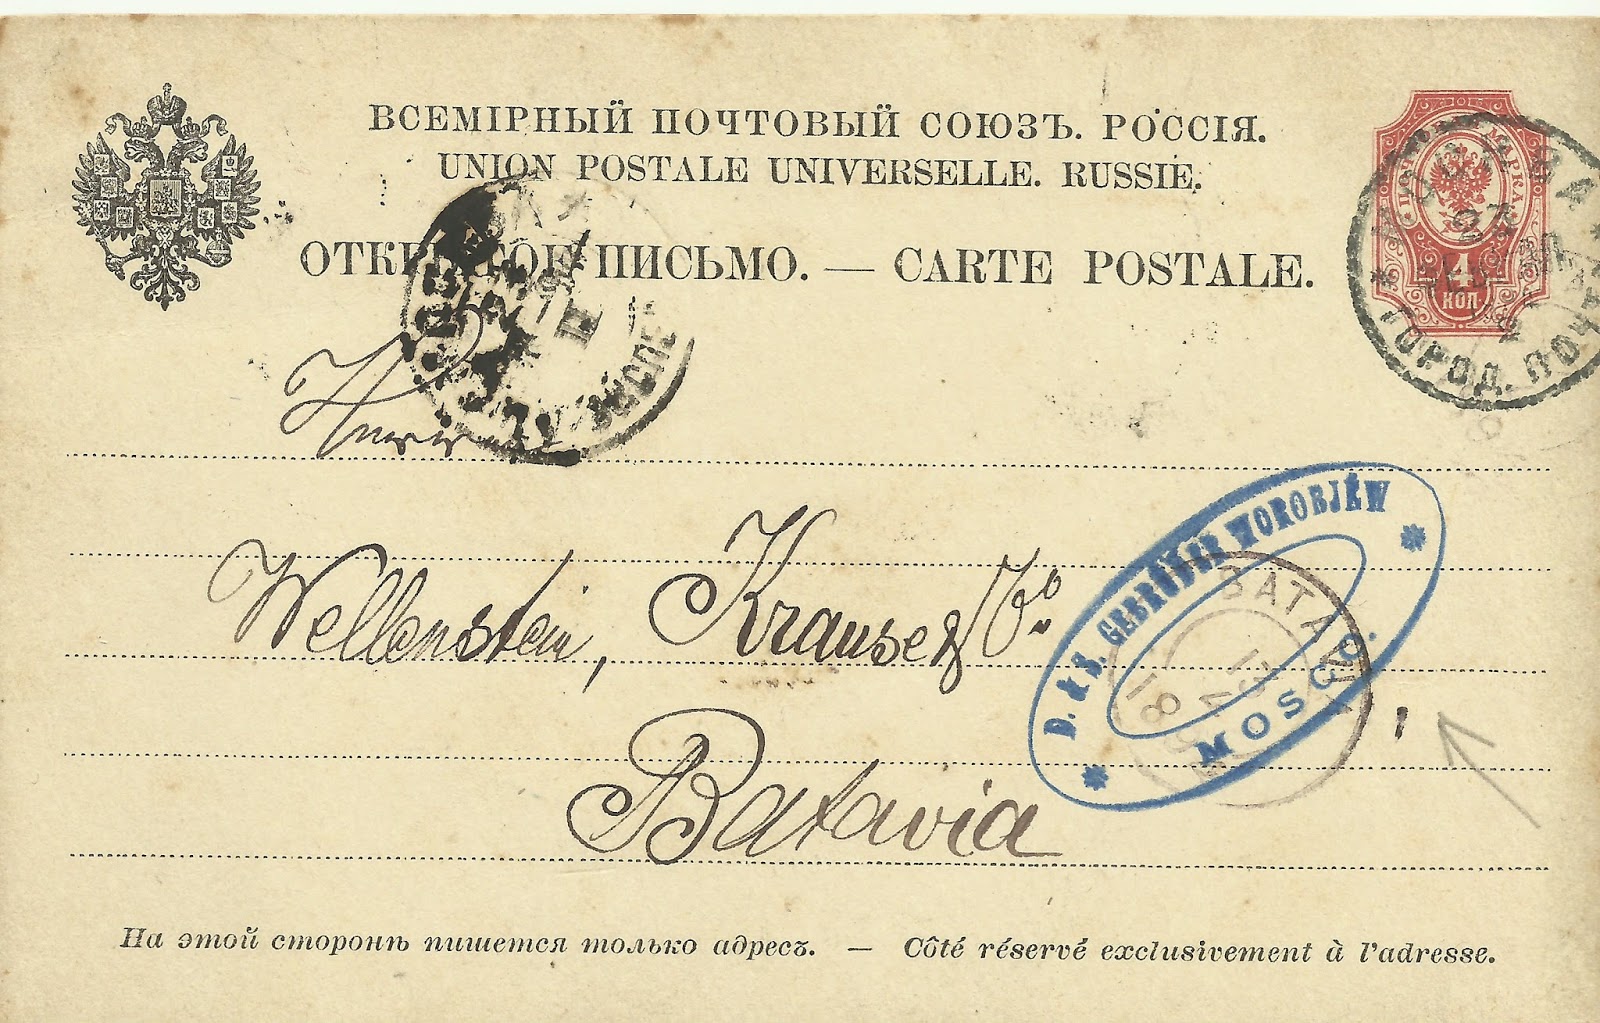 ВСЕМІРНЫЙ ПОЧТОВЫЙ СОЮЗЪ. РОССІЯ.
UNION POSTALE UNIVERSELLE. RUSSIE.
ОТКРЫТОЕ ПИСЬМО. — CARTE POSTALE.
4
КОП
МОСКВА
27
ГОРОД. ПОЧ
Wellenstein, Krause & Co
D. & S. GEBRÜDER WOROBJEW
MOSCO.
BATAVIA
13
4
18
Batavia
На этой сторонѣ пишется только адресъ. — Côté réservé exclusivement à l'adresse.